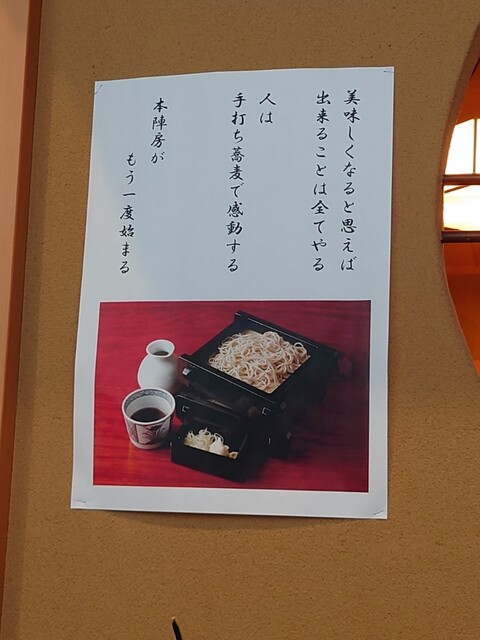 美味しくなると思えば
出来ることは全てやる
人は
手打ち蕎麦で感動する
本陣房が
もう一度始まる